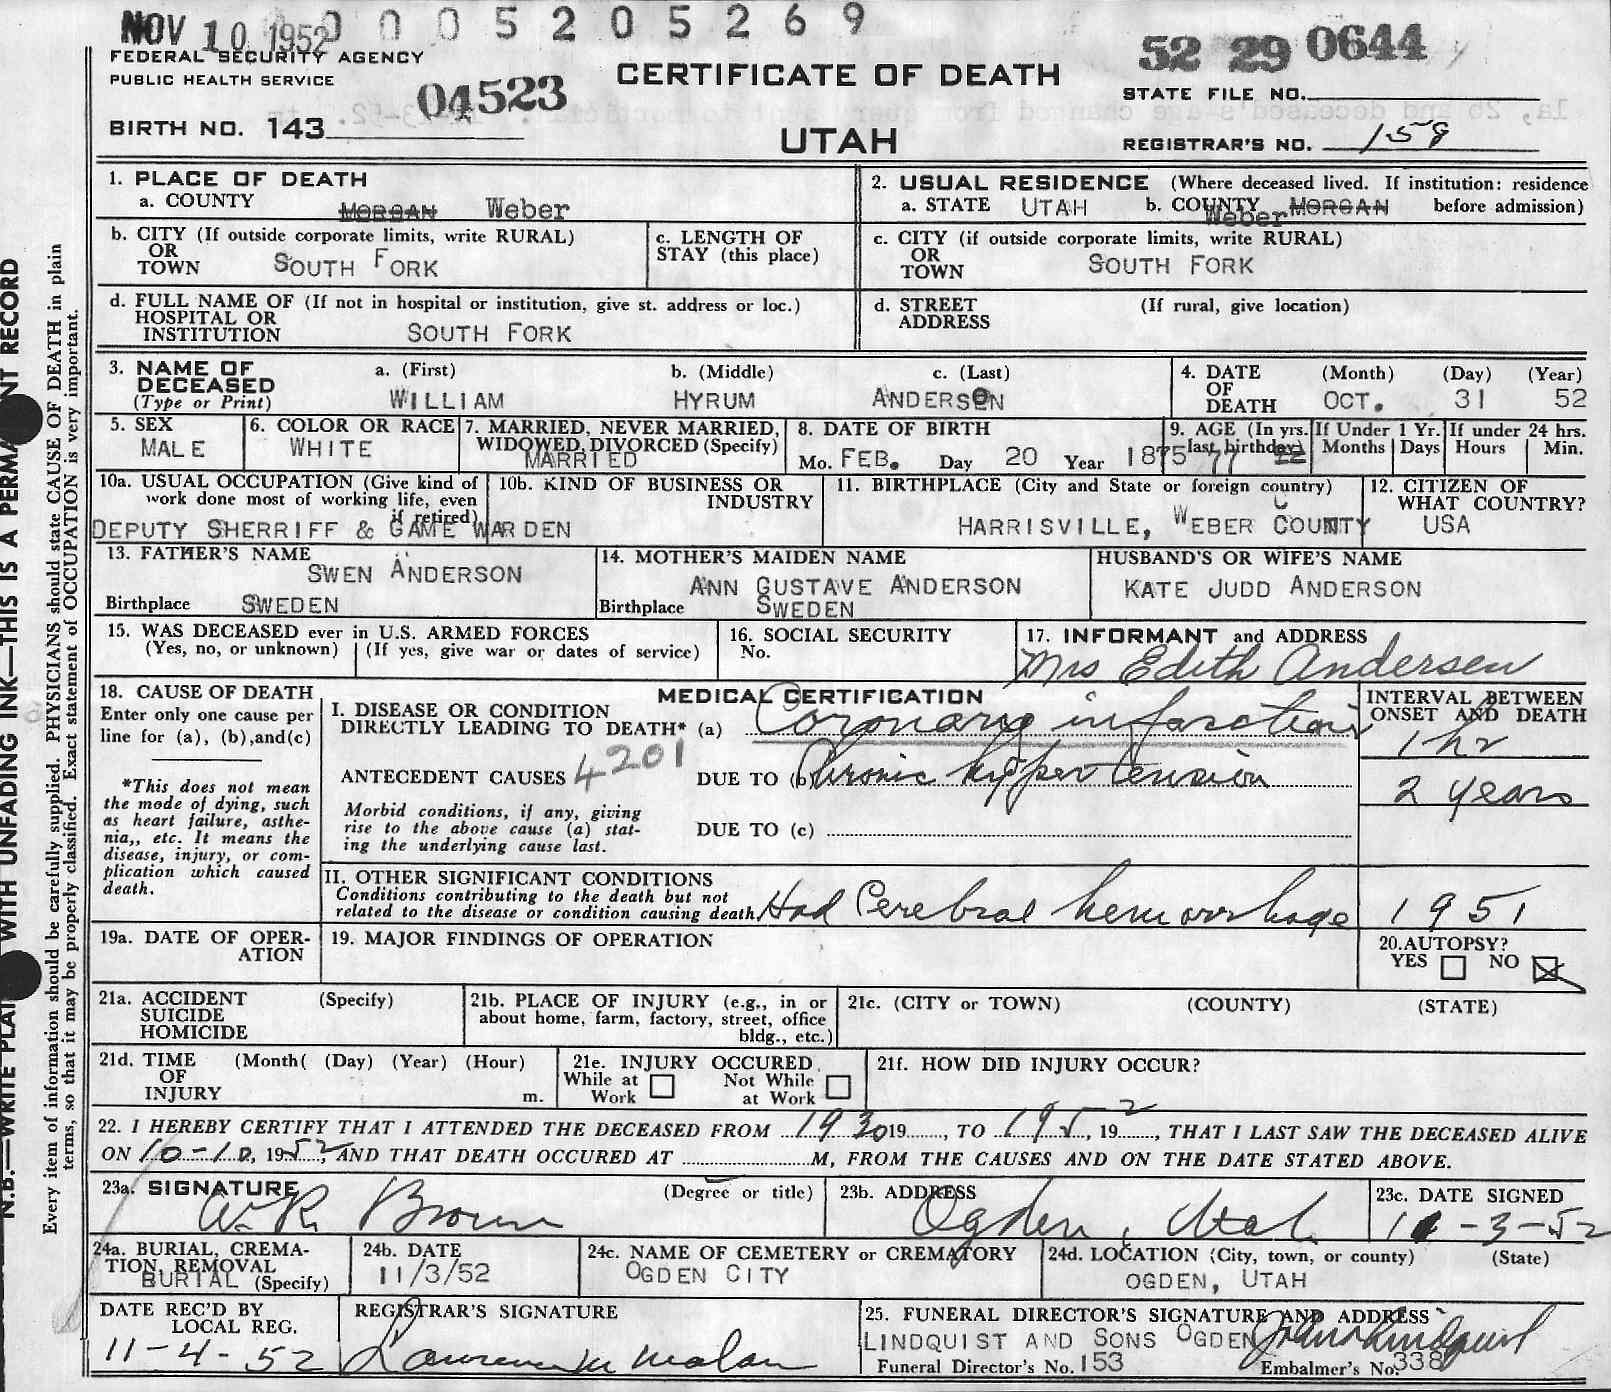 NOV 10 1952 0 0 0 5 2 0 5 2 6 9
FEDERAL SECURITY AGENCY
PUBLIC HEALTH SERVICE
04523
CERTIFICATE OF DEATH
52 29 0644
STATE FILE NO.
BIRTH NO. 143
UTAH
REGISTRAR'S NO. 158
1. PLACE OF DEATH
a. COUNTY MORGAN Weber
2. USUAL RESIDENCE (Where deceased lived. If institution: residence before admission)
a. STATE UTAH b. COUNTY Weber MORGAN
b. CITY (If outside corporate limits, write RURAL)
OR
TOWN SOUTH FORK
c. LENGTH OF
STAY (this place)
c. CITY (if outside corporate limits, write RURAL)
OR
TOWN SOUTH FORK
d. FULL NAME OF (If not in hospital or institution, give st. address or loc.)
HOSPITAL OR
INSTITUTION SOUTH FORK
d. STREET (If rural, give location)
ADDRESS
3. NAME OF
DECEASED
(Type or Print)
a. (First) b. (Middle) c. (Last)
WILLIAM HYRUM ANDERSEN
4. DATE (Month) (Day) (Year)
OF
DEATH OCT. 31 52
5. SEX
MALE
6. COLOR OR RACE
WHITE
7. MARRIED, NEVER MARRIED,
WIDOWED, DIVORCED (Specify)
MARRIED
8. DATE OF BIRTH
Mo. FEB. Day 20 Year 1875
9. AGE (In yrs.
last birthday)
77
If Under 1 Yr.
Months Days
If under 24 hrs.
Hours Min.
10a. USUAL OCCUPATION (Give kind of
work done most of working life, even
if retired)
DEPUTY SHERRIFF & GAME WARDEN
10b. KIND OF BUSINESS OR
INDUSTRY
11. BIRTHPLACE (City and State or foreign country)
HARRISVILLE, WEBER COUNTY
12. CITIZEN OF
WHAT COUNTRY?
USA
13. FATHER'S NAME
SWEN ANDERSON
Birthplace SWEDEN
14. MOTHER'S MAIDEN NAME
ANN GUSTAVE ANDERSON
Birthplace SWEDEN
HUSBAND'S OR WIFE'S NAME
KATE JUDD ANDERSON
15. WAS DECEASED ever in U.S. ARMED FORCES
(Yes, no, or unknown) (If yes, give war or dates of service)
16. SOCIAL SECURITY
No.
17. INFORMANT and ADDRESS
Mrs Edith Andersen
18. CAUSE OF DEATH
Enter only one cause per
line for (a), (b),and(c)
*This does not mean
the mode of dying, such
as heart failure, asthe-
nia,, etc. It means the
disease, injury, or com-
plication which caused
death.
MEDICAL CERTIFICATION
I. DISEASE OR CONDITION
DIRECTLY LEADING TO DEATH* (a) Coronary infarction
ANTECEDENT CAUSES 4201 DUE TO (b) Chronic hypertension
Morbid conditions, if any, giving
rise to the above cause (a) stat-
ing the underlying cause last.
DUE TO (c)
INTERVAL BETWEEN
ONSET AND DEATH
1 hr
2 years
II. OTHER SIGNIFICANT CONDITIONS
Conditions contributing to the death but not
related to the disease or condition causing death. Had Cerebral hemorrhage
1951
19a. DATE OF OPER-
ATION
19. MAJOR FINDINGS OF OPERATION
20.AUTOPSY?
YES NO
21a. ACCIDENT (Specify)
SUICIDE
HOMICIDE
21b. PLACE OF INJURY (e.g., in or
about home, farm, factory, street, office
bldg., etc.)
21c. (CITY or TOWN) (COUNTY) (STATE)
21d. TIME (Month( (Day) (Year) (Hour)
OF
INJURY m.
21e. INJURY OCCURED
While at Work Not While at Work
21f. HOW DID INJURY OCCUR?
22. I HEREBY CERTIFY THAT I ATTENDED THE DECEASED FROM 1930 19, TO 1952, 19, THAT I LAST SAW THE DECEASED ALIVE
ON 10-10, 1952, AND THAT DEATH OCCURED AT M, FROM THE CAUSES AND ON THE DATE STATED ABOVE.
23a. SIGNATURE (Degree or title)
W.R. Brown
23b. ADDRESS
Ogden, Utah
23c. DATE SIGNED
11-3-52
24a. BURIAL, CREMA-
TION, REMOVAL
BURIAL (Specify)
24b. DATE
11/3/52
24c. NAME OF CEMETERY or CREMATORY
OGDEN CITY
24d. LOCATION (City, town, or county) (State)
OGDEN, UTAH
DATE REC'D BY
LOCAL REG.
11-4-52
REGISTRAR'S SIGNATURE
Lawrence M Malan
25. FUNERAL DIRECTOR'S SIGNATURE AND ADDRESS
LINDQUIST AND SONS OGDEN
Funeral Director's No. 153 Embalmer's No. 338
N.B.—WRITE PLAI WITH UNFADING INK—THIS IS A PERMA NT RECORD
Every item of information should be carefully supplied. PHYSICIANS should state CAUSE OF DEATH in plain
terms, so that it may be properly classified. Exact statement of OCCUPATION is very important.